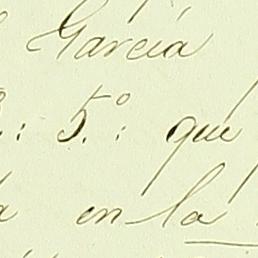 García
: 5.º : que
en la